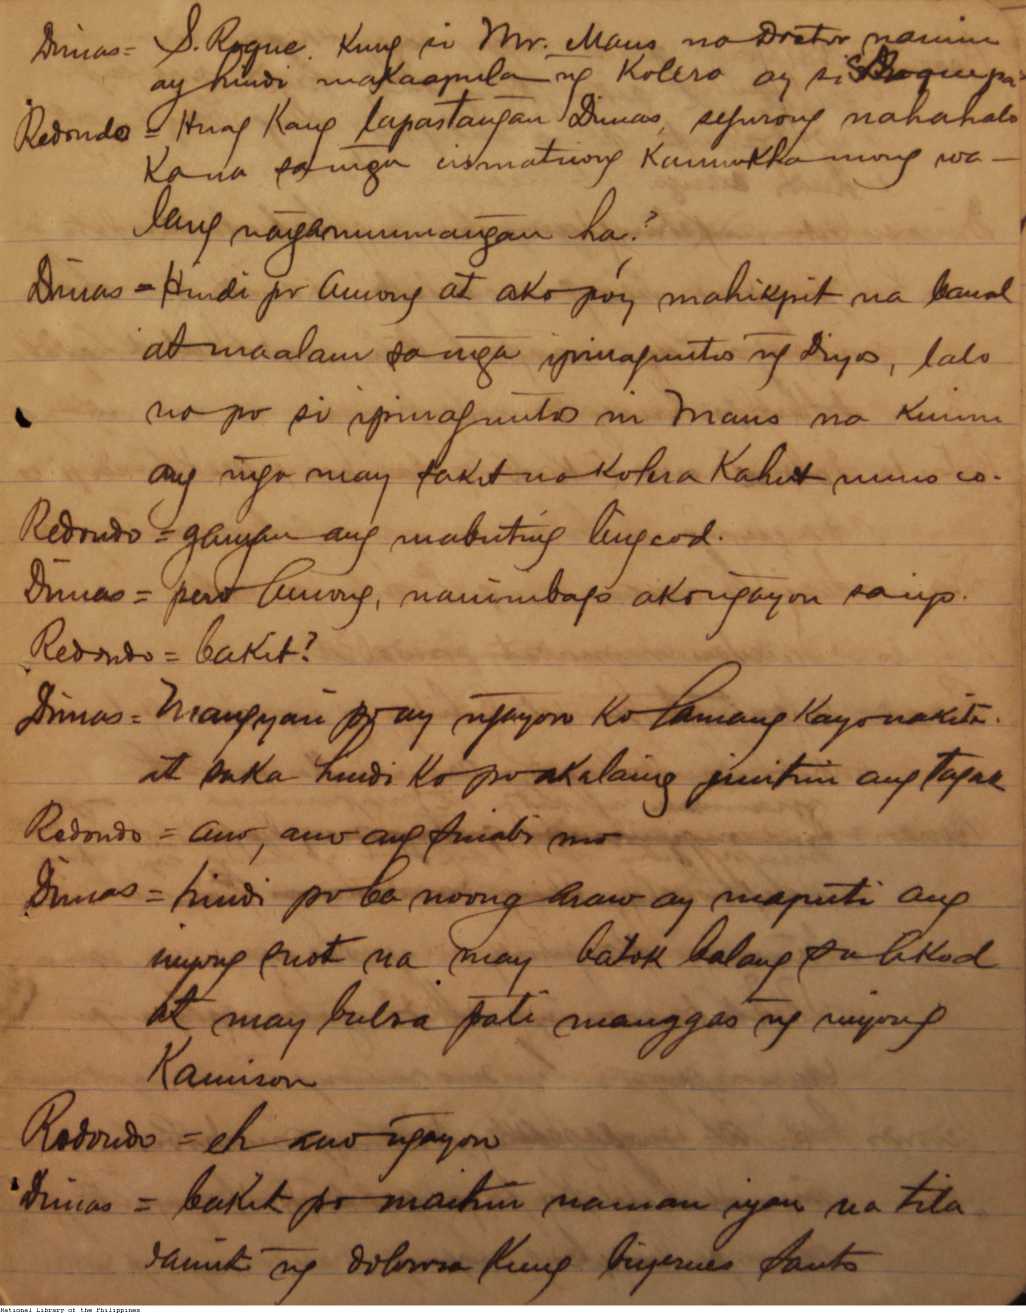 Dimas = S. Roque. Kung si Mr. Maus na Doctor namin
ay hindi makaapula ng Kolera ay si S. Roque pa
Redondo = Huag Kang lapastangan Dimas, segurong nahahalo
Ka na sa mga cismaticong Kamukha mong wa-
lang nagamumangan ha?
Dimas = Hindi po Among at ako poy mahikpit na banal
at maalam sa mga ipinaguutos ng Diyos, lalo
na po si ipinaguutos ni Maus na kunin
ang mga may sakit na Kolera Kahit nuno co.
Redondo = ganyan ang mabuting lingcod.
Dimas = pero Among, naninibago ako ngayon sa inyo.
Redondo = bakit?
Dimas = Mangyari po ay ngayon Ko lamang Kayo nakita.
at saka hindi Ko po akalaing juitim ang tagak
Redondo = ano, ano ang sinabi mo
Dimas = hindi po ba noong araw ay maputi ang
inyong suot na may batok balang sa likod
at may bulsa pati manggas ng inyong
Kamison
Redondo = eh ano ngayon
Dimas = bakit po maitim naman iyan na tila
damit ng dolorosa Kung biyernes Santo
National Library of the Philippines